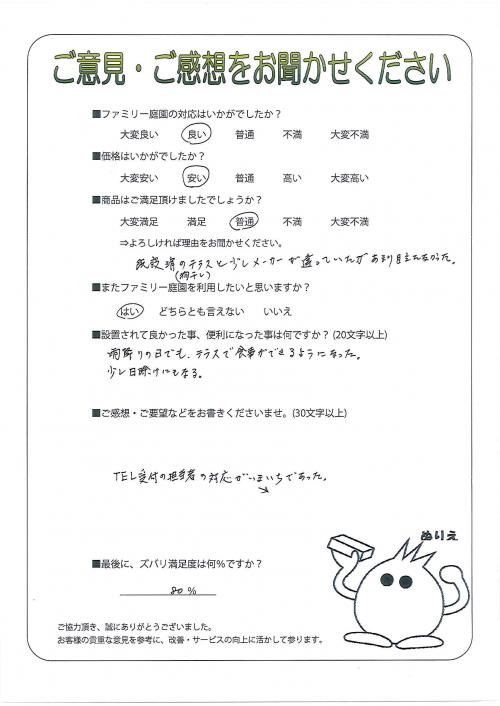 ご意見・ご感想をお聞かせください
■ファミリー庭園の対応はいかがでしたか？
大変良い 良い 普通 不満 大変不満
■価格はいかがでしたか？
大変安い 安い 普通 高い 大変高い
■商品はご満足頂けましたでしょうか？
大変満足 満足 普通 不満 大変不満
⇒よろしければ理由をお聞かせください。
のテラスと少しメーカーが違っていたがあまり目立たなかった。
■またファミリー庭園を利用したいと思いますか？
はい どちらとも言えない いいえ
■設置されて良かった事、便利になった事は何ですか？（20文字以上）
雨降りの日でも、テラスで食事ができるようになった。
少し日除けにもなる。
■ご感想・ご要望などをお書きくださいませ。（30文字以上）
TEL受付の担当者の対応がいまいちであった。
ぬりえ
■最後に、ズバリ満足度は何％ですか？
80％
ご協力頂き、誠にありがとうございました。
お客様の貴重な意見を参考に、改善・サービスの向上に活かして参ります。